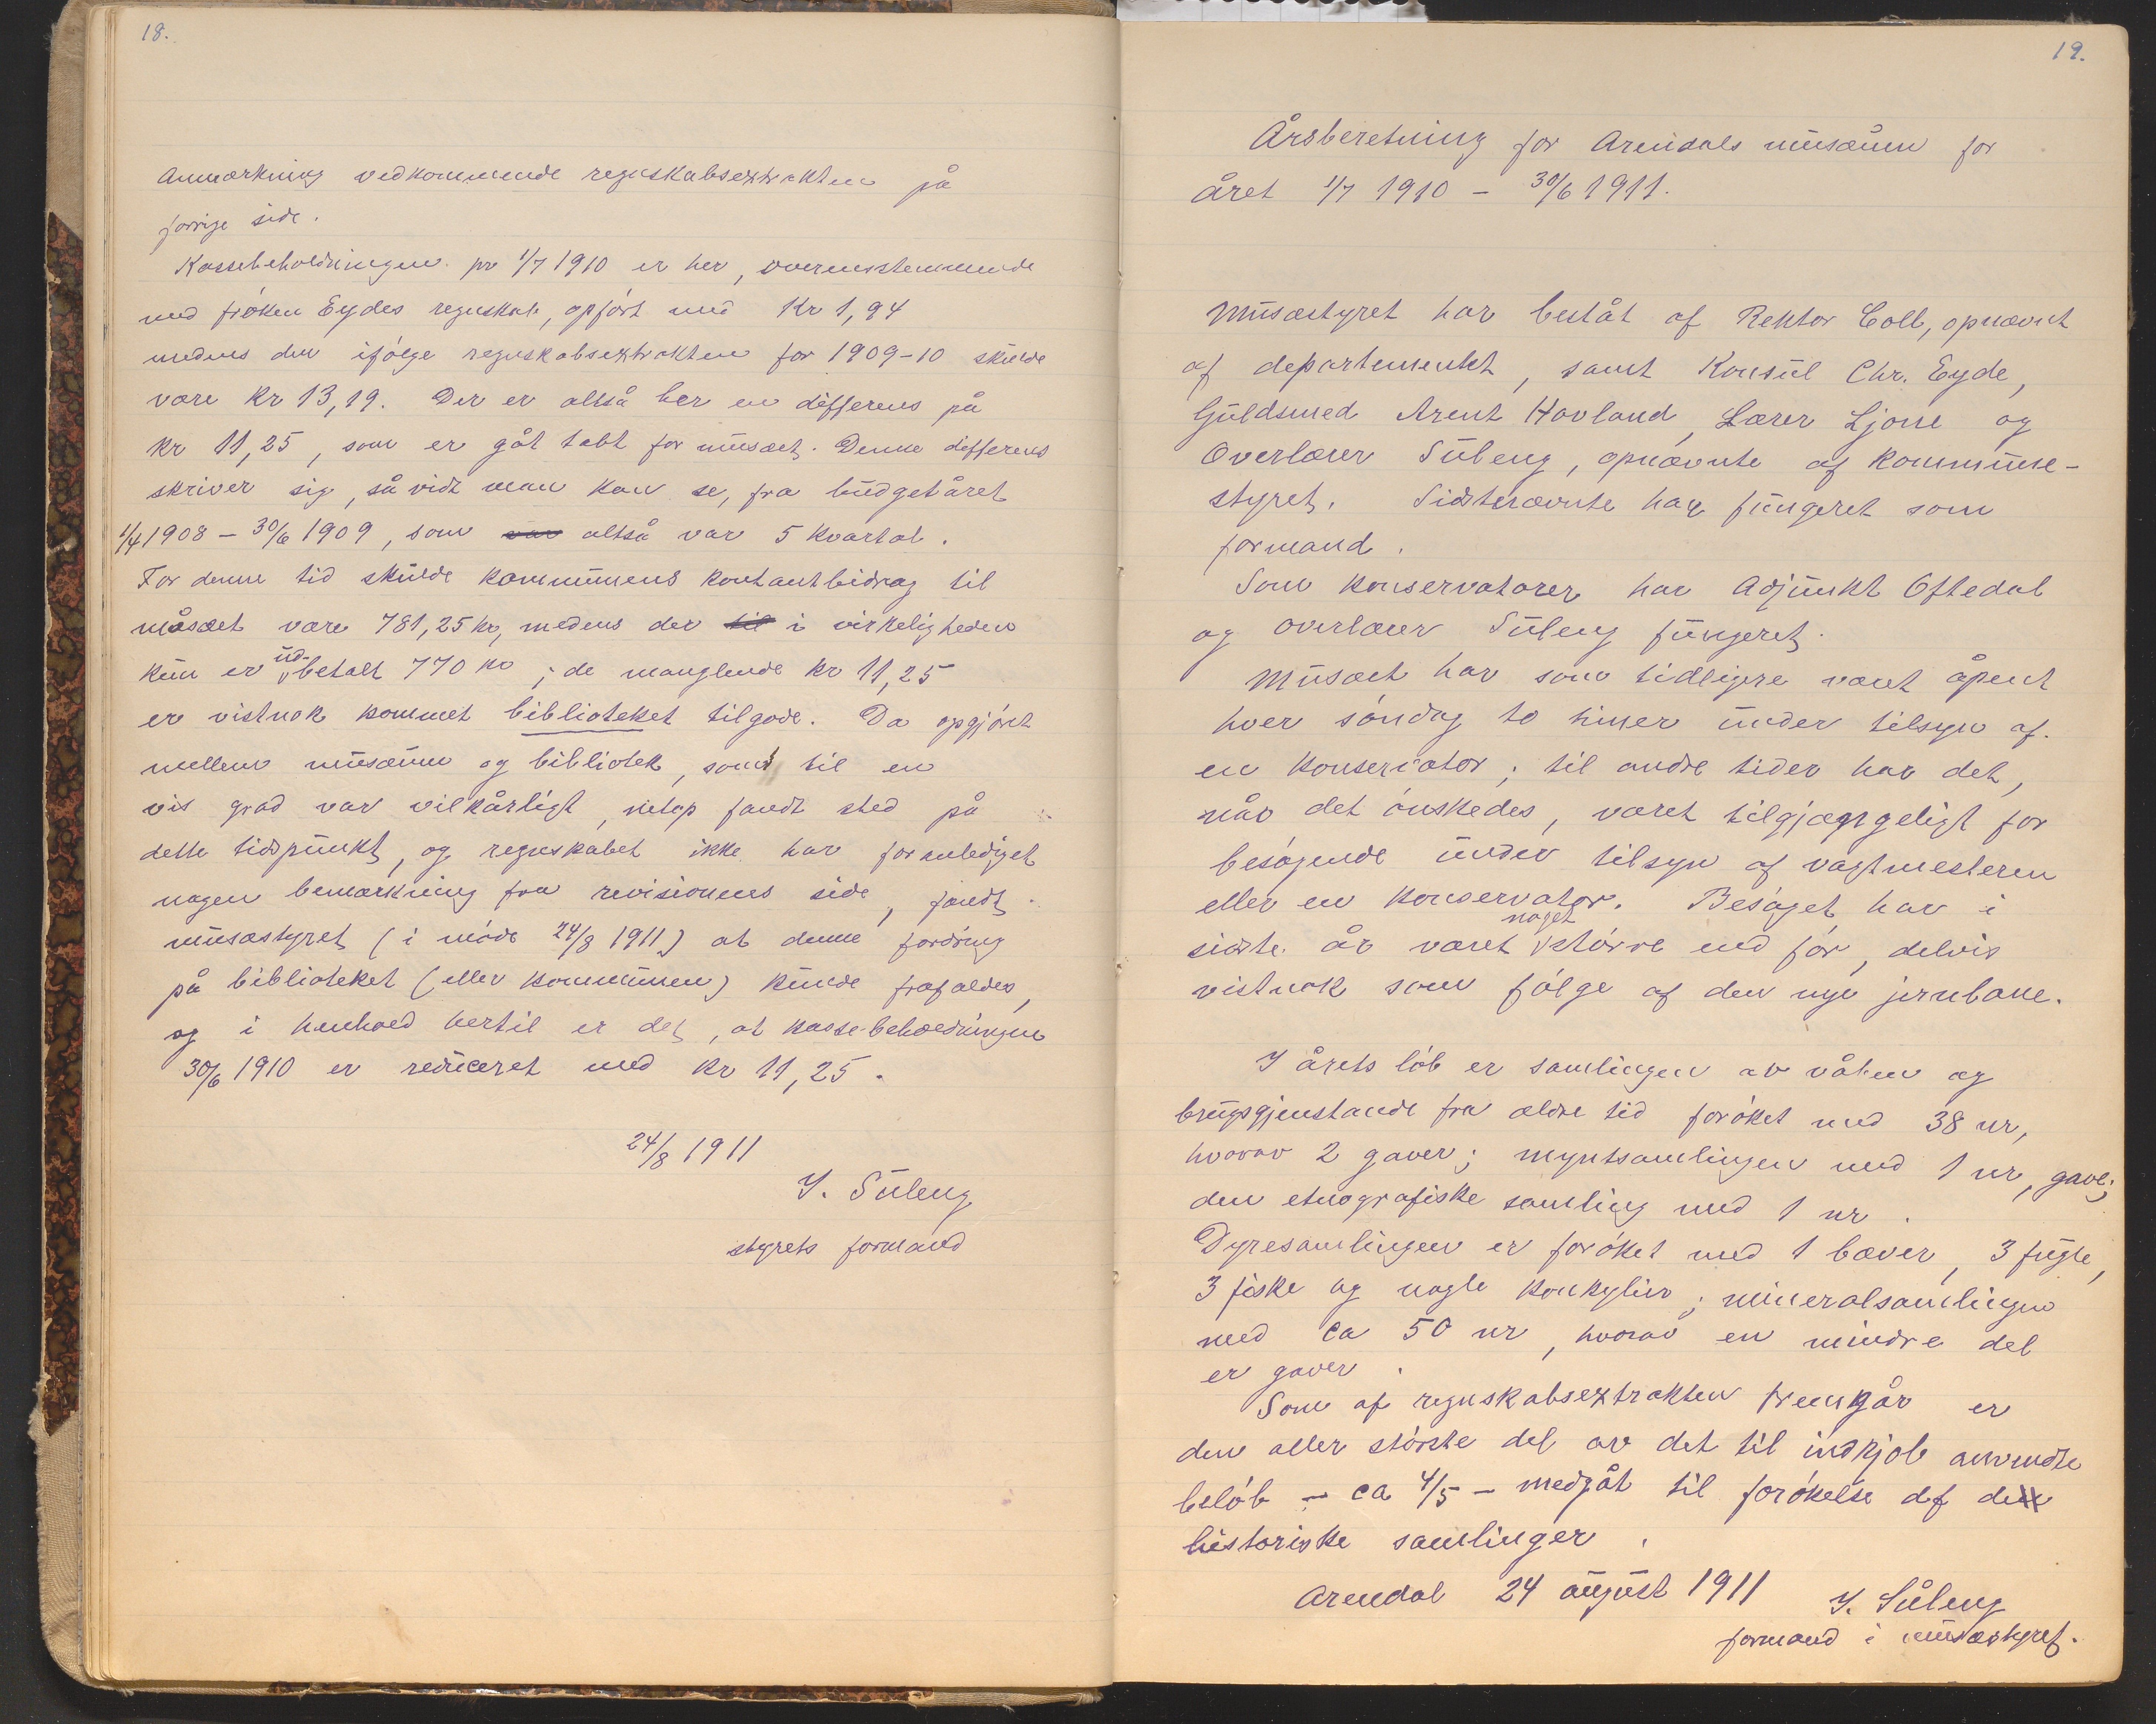 18.
Anmærkning vedkommende regnskabsextrakten på
forrige side.
Kassebeholdningen pr 1/7 1910 er her, overensstemmende
med frøken Eydes regnskab, opført med Kr 1,94
medens den ifølge regnskabsextrakten for 1909-10 skulde
være Kr 13,19. Der er altså her en differens på
Kr 11,25, som er gåt tabt for musæet. Denne differens
skriver sig, så vidt man kan se, fra budgetåret
1/4 1908 - 30/6 1909, som var altså var 5 kvartal.
For denne tid skulde kommunens kontantbidrag til
musæet være 781,25 kr, medens der til i virkeligheden
kun er udbetalt 770 kr; de manglende kr 11,25
er vistnok kommet biblioteket tilgode. Da opgjøret
mellem musæum og bibliotek, som til en
vis grad var vilkårligt, netop fandt sted på
dette tidspunkt, og regnskabet ikke har foranlediget
nogen bemærkning fra revisionens side, fandt
musæstyret (i møde 24/8 1911) at denne fordring
på biblioteket (eller kommunen) kunde frafaldes,
og i henhold hertil er det, at kassebeholdningen
30/6 1910 er reduceret med Kr 11,25.
24/8 1911
I. Süleng
styrets formand
19.
Årsberetning for Arendals musæum for
året 1/7 1910 - 30/6 1911.
Musæstyret har bestått af Rektor Coll, opnævnt
af departementet, samt Konsul Chr. Eyde,
Guldsmed Arent Hovland, Lærer Ljone og
Overlærer Süleng, opnævnte af kommune-
styret. Sidstnævnte har fungeret som
formand.
Som konservatorer har Adjunkt Oftedal
og overlærer Süleng fungeret.
Musæet har som tidligere været åpent
hver søndag to timer under tilsyn af
en konservator; til andre tider har det,
når det ønskedes, været tilgjængeligt for
besøgende under tilsyn af vagtmesteren
eller en konservator. Besøget har i
sidste år været noget større end før, delvis
vistnok som følge af den nye jernbane.
I årets løb er samlingen av våben og
brugsgjenstande fra ældre tid forøket med 38 nr,
hvorav 2 gaver; myntsamlingen med 1 nr, gave;
den etnografiske samling med 1 nr.
Dyresamlingen er forøket med 1 bæver, 3 fugle,
3 fiske og nogle konkylier; mineralsamlingen
med ca 50 nr, hvorav en mindre del
er gaver.
Som af regnskabsextrakten fremgår er
den aller største del av det til indkjøb anvendte
beløb - ca 4/5 - medgåt til forøkelse af de
historiske samlinger.
Arendal 24 august 1911
I. Süleng
formand i musæstyret.